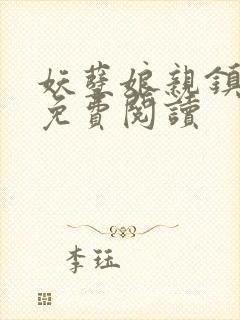 妖孽娘親鎮
免費閱讀
李珏